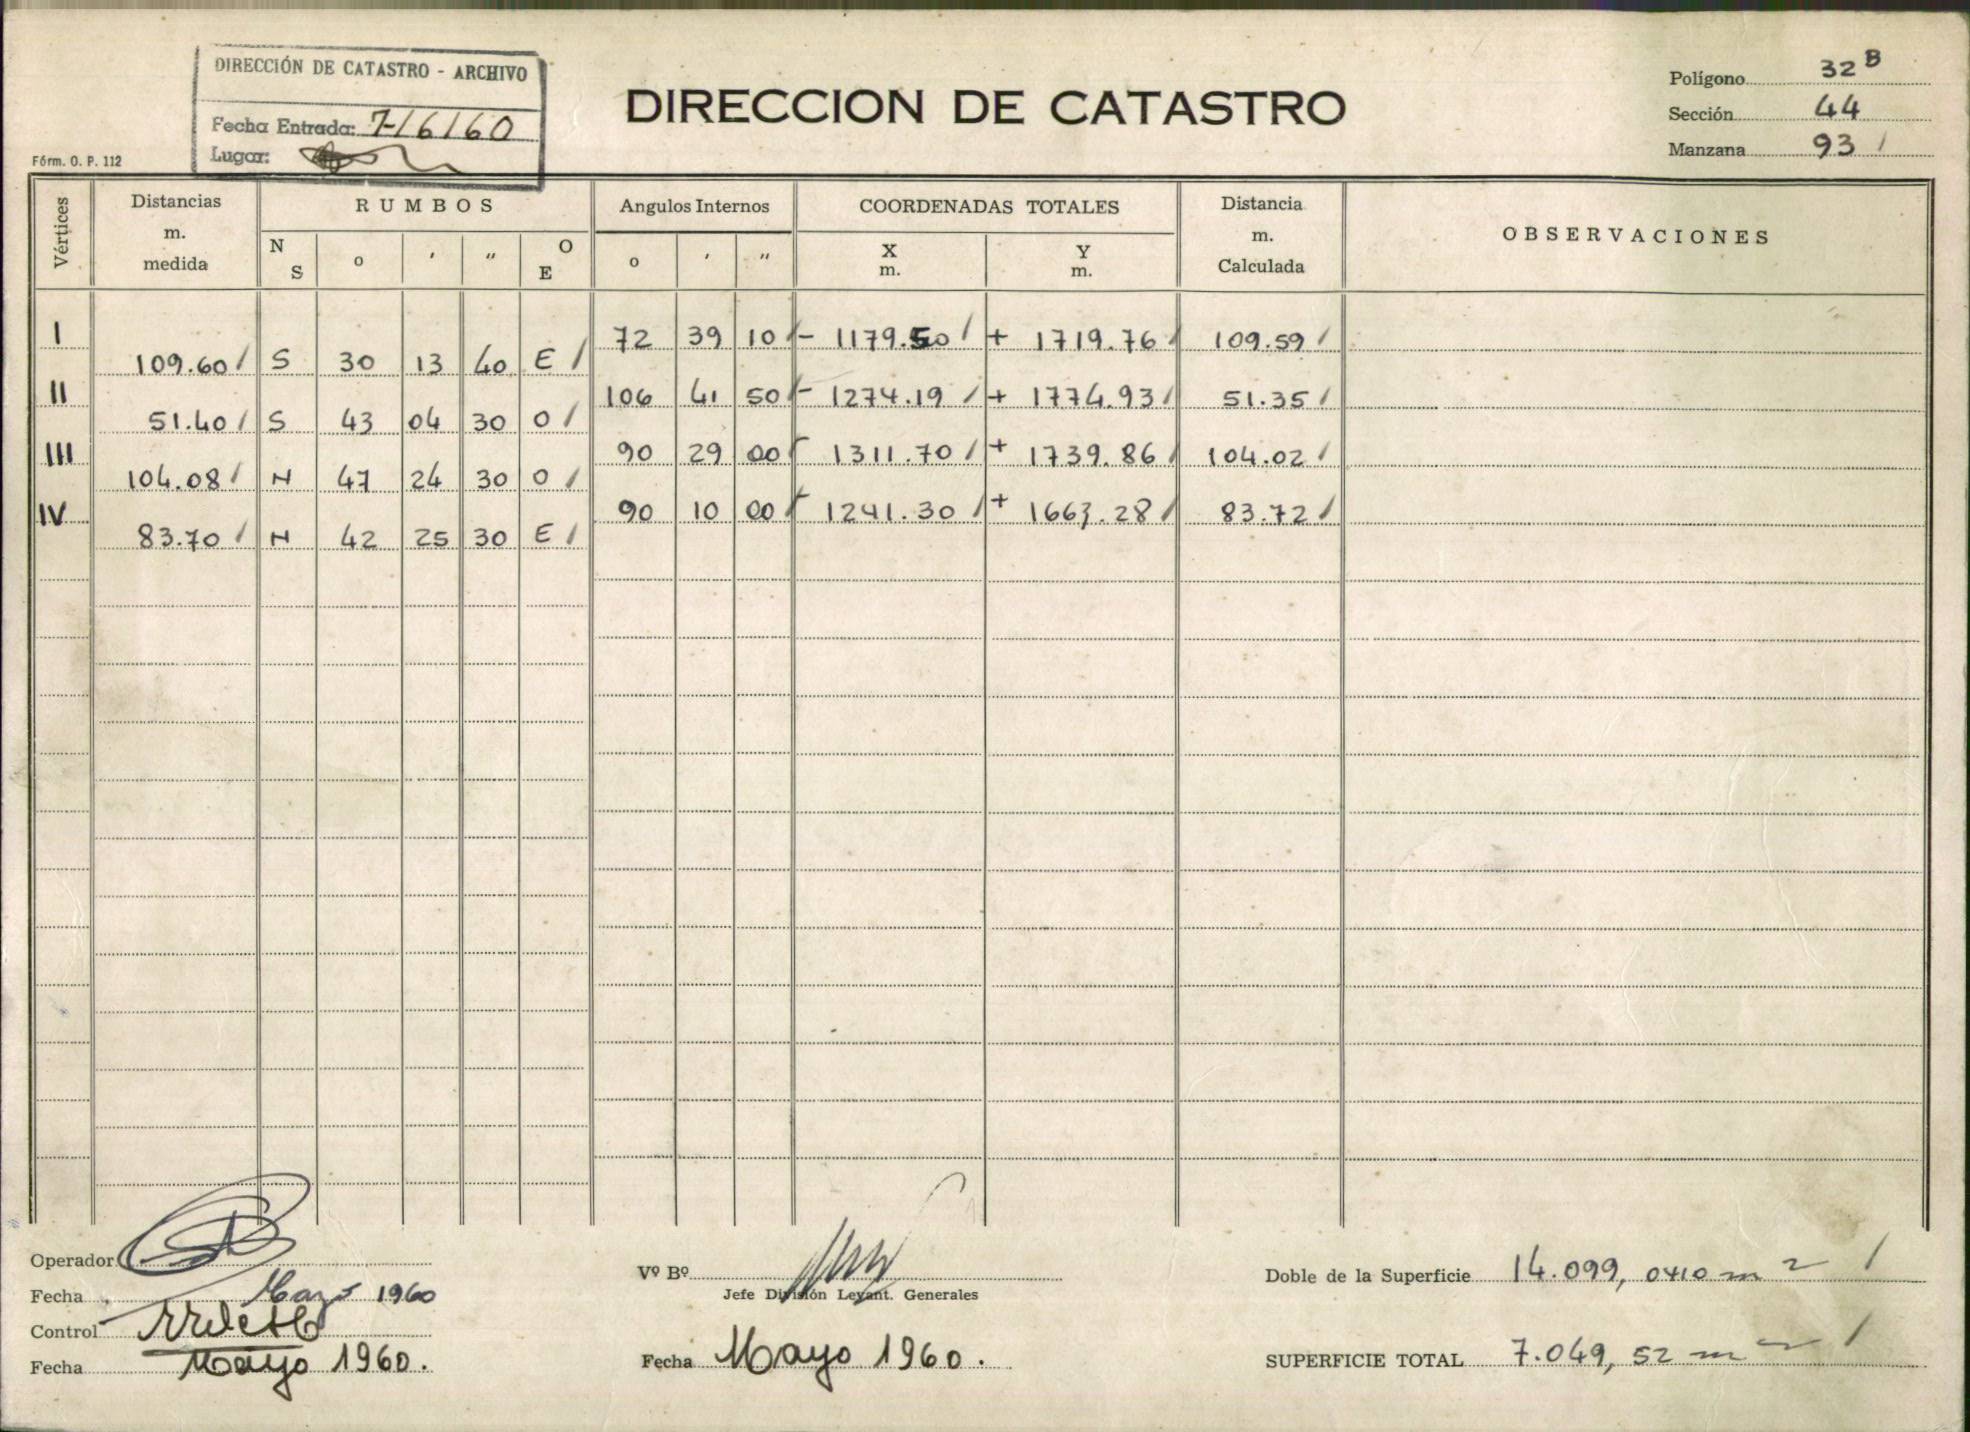 DIRECCIÓN DE CATASTRO - ARCHIVO
Fecha Entrada: 7/6/60
Lugar:
DIRECCION DE CATASTRO
Polígono 32 B
Sección 44
Manzana 93 /
Fórm. O. P. 112
Vértices
Distancias m. medida
RUMBOS
N S
o
′
″
O E
Angulos Internos
o
′
″
COORDENADAS TOTALES
X m.
Y m.
Distancia m. Calculada
OBSERVACIONES
I 72 39 10 / - 1179.50 / + 1719.76 / 109.59 /
109.60 / S 30 13 40 E /
II 106 41 50 / - 1274.19 / + 1774.93 / 51.35 /
51.40 / S 43 04 30 O /
III 90 29 00 / - 1311.70 / + 1739.86 / 104.02 /
104.08 / N 47 24 30 O /
IV 90 10 00 / - 1241.30 / + 1663.28 / 83.72 /
83.70 / N 42 25 30 E /
Operador
Fecha Mayo 1960
Control
Fecha Mayo 1960.
Vº Bº
Jefe División Levant. Generales
Fecha Mayo 1960.
Doble de la Superficie 14.099, 0410 m² /
SUPERFICIE TOTAL 7.049, 52 m² /